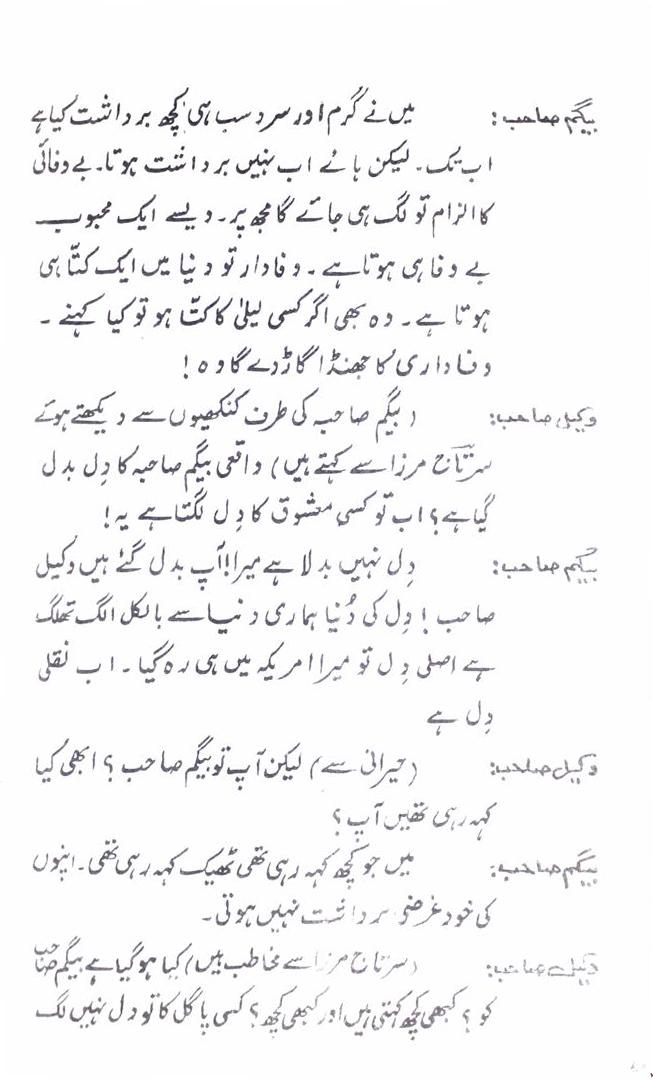 بیگم صاحب: میں نے گرم اور سرد سب ہی کچھ برداشت کیا ہے
اب تک۔ لیکن ہائے اب نہیں برداشت ہوتا۔ بے وفائی
کا الزام تو لگ ہی جائے گا مجھ پر۔ ویسے ایک محبوب
بے وفا ہی ہوتا ہے۔ وفادار تو دنیا میں ایک کتّا ہی
ہوتا ہے۔ وہ بھی اگر کسی لیلیٰ کا کتّا ہو تو کیا کہنے۔
وفاداری کا جھنڈا گاڑ دے گا وہ!
وکیل صاحب: (بیگم صاحبہ کی طرف کنکھیوں سے دیکھتے ہوئے
سرتاج مرزا سے کہتے ہیں) واقعی بیگم صاحبہ کا دِل بدل
گیا ہے؟ اب تو کسی معشوق کا دِل لگتا ہے یہ!
بیگم صاحب: دِل نہیں بدلا ہے میرا! آپ بدل گئے ہیں وکیل
صاحب! دِل کی دُنیا ہماری دنیا سے بالکل الگ تھلگ
ہے اصلی دِل تو میرا امریکہ میں ہی رہ گیا۔ اب نقلی
دِل ہے
وکیل صاحب: (حیرانی سے) لیکن آپ تو بیگم صاحب؟ ابھی کیا
کہہ رہی تھیں آپ؟
بیگم صاحب: میں جو کچھ کہہ رہی تھی ٹھیک کہہ رہی تھی۔ اپنوں
کی خود غرضی برداشت نہیں ہوتی۔
وکیل صاحب: (سرتاج مرزا سے مخاطب ہیں) کیا ہو گیا ہے بیگم صاحب
کو؟ کبھی کچھ کہتی ہیں اور کبھی کچھ؟ کسی پاگل کا تو دل نہیں لگ